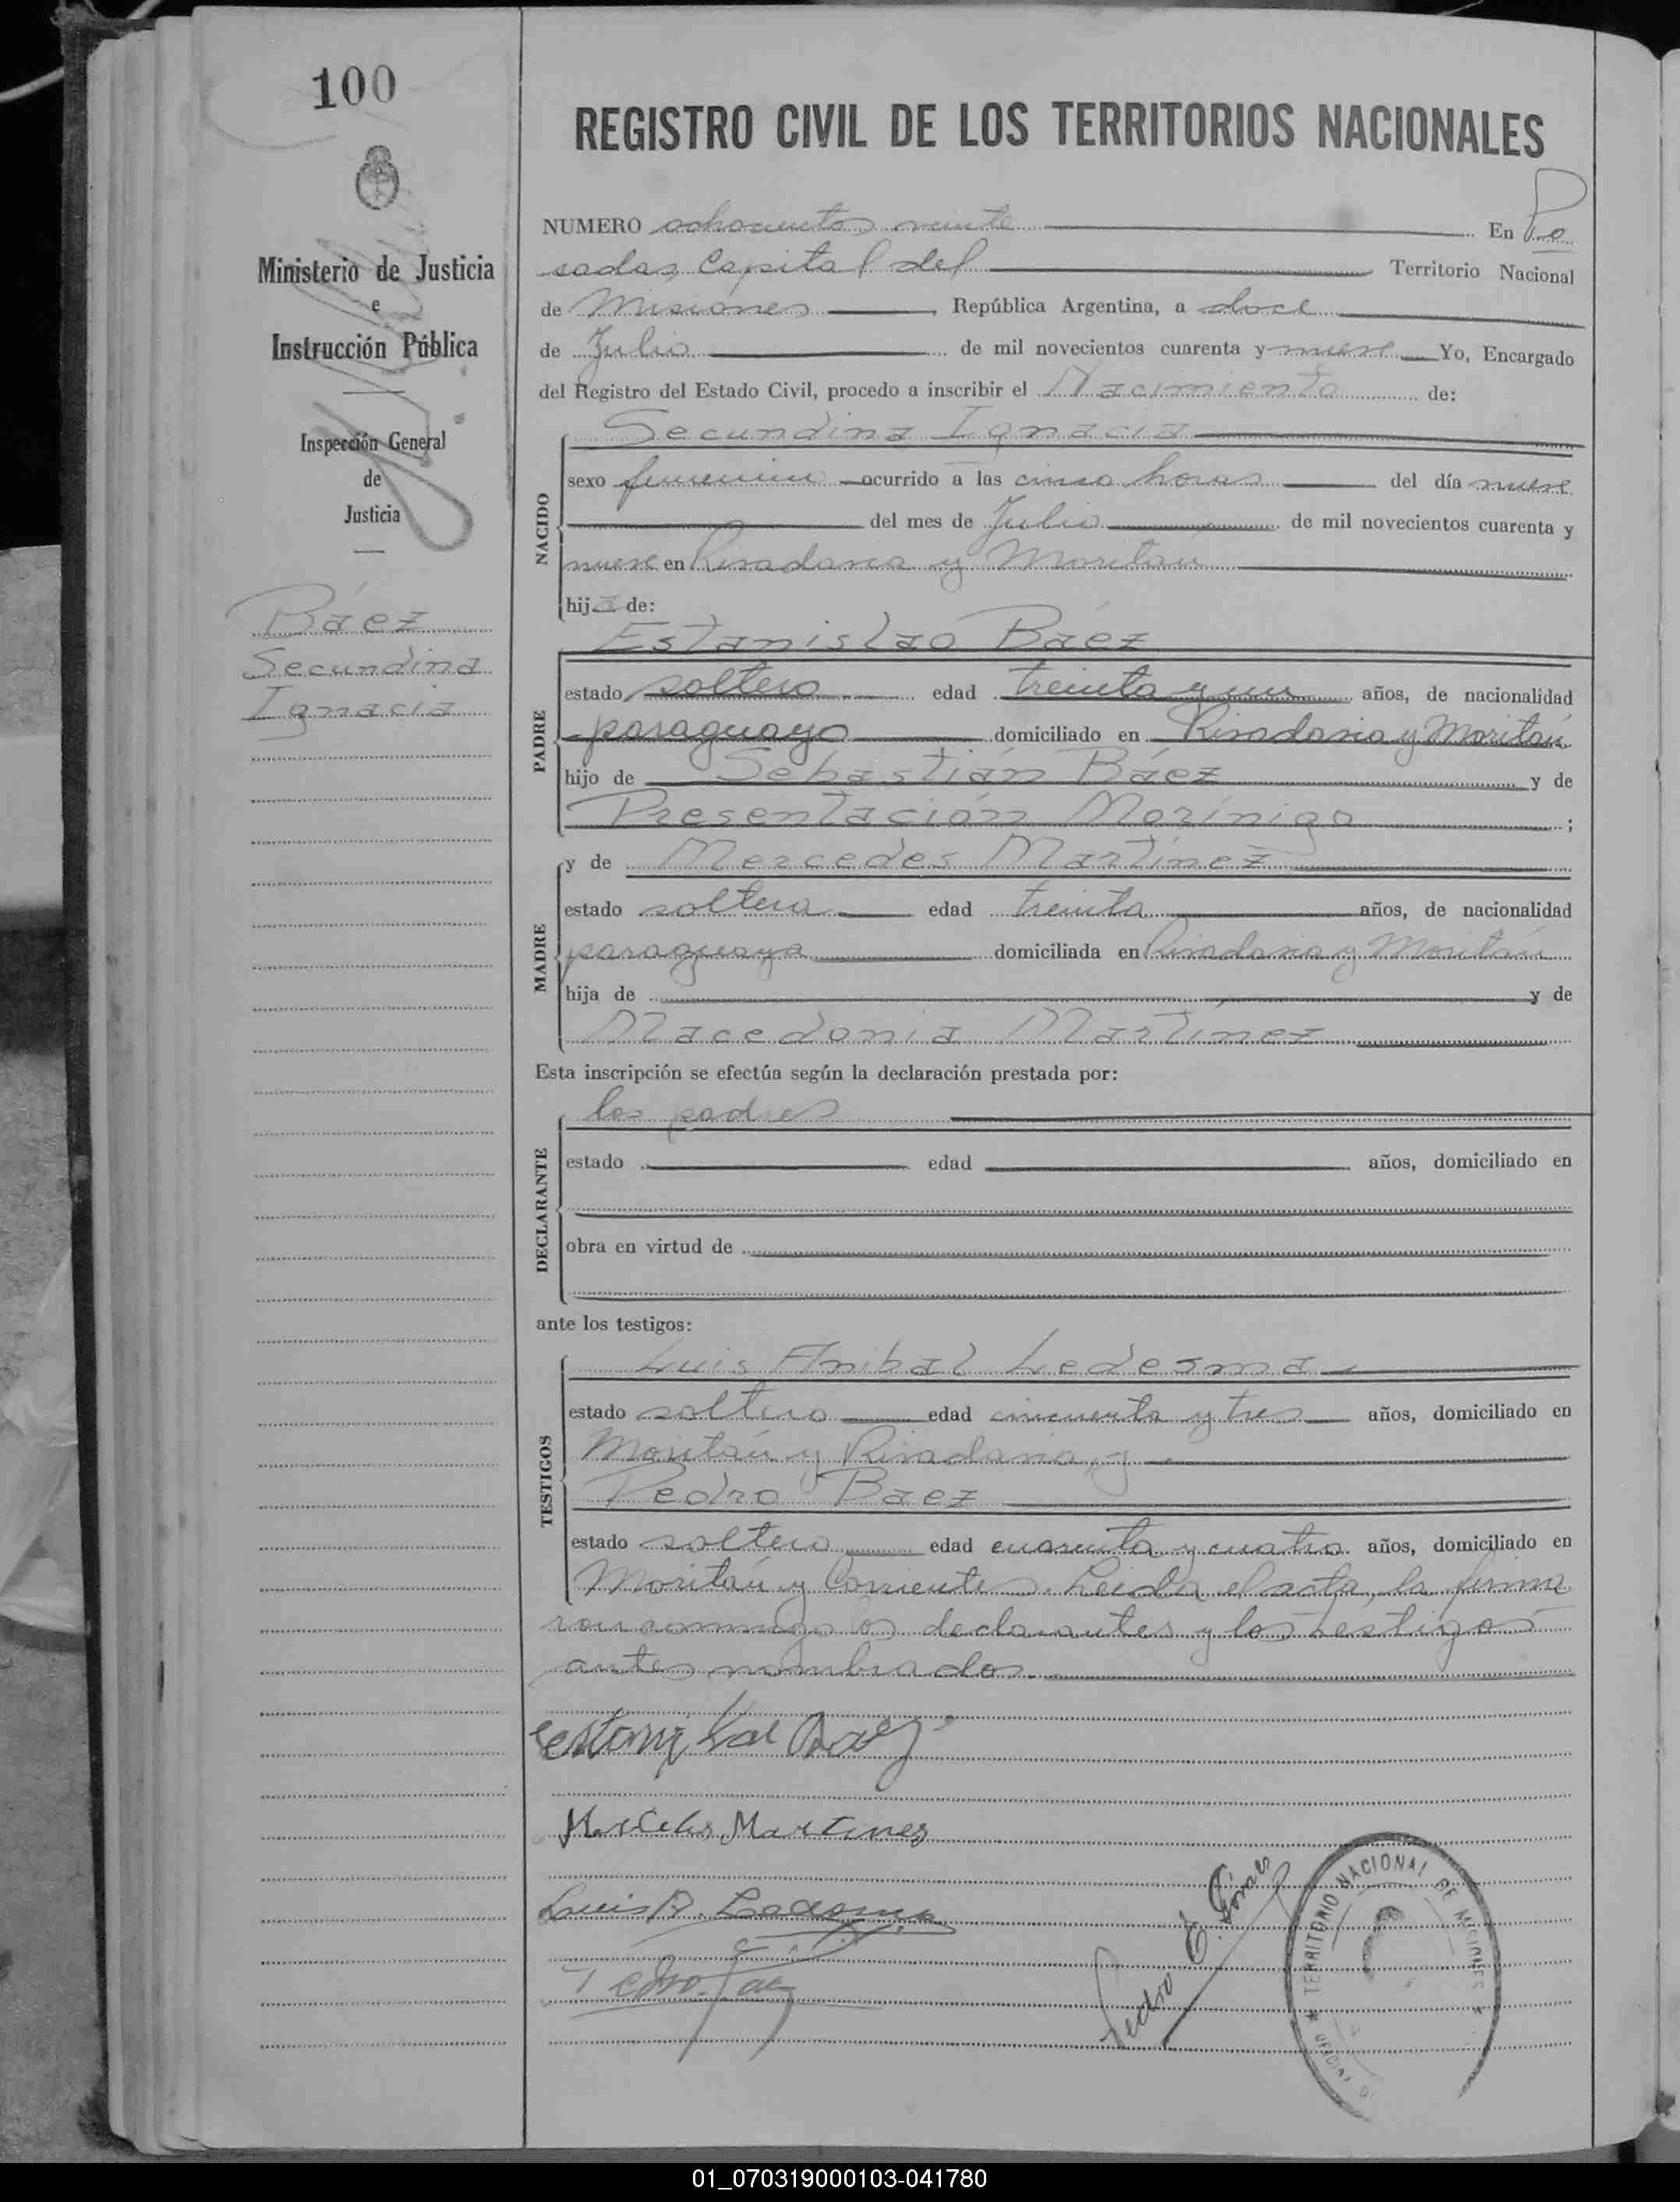 100
REGISTRO CIVIL DE LOS TERRITORIOS NACIONALES
Ministerio de Justicia
e
Instrucción Pública
Inspección General
de
Justicia
Báez
Secundina
Ignacia
NUMERO ochocientos veinte En Po
sadas, Capital del Territorio Nacional
de Misiones República Argentina, a doce
de Julio de mil novecientos cuarenta y nueve Yo, Encargado
del Registro del Estado Civil, procedo a inscribir el Nacimiento de:
NACIDO
Secundina Ignacia
sexo femenino ocurrido a las cinco horas del día nueve
del mes de Julio de mil novecientos cuarenta y
nueve en Rivadavia y Moritán
hija de:
PADRE
Estanislao Báez
estado soltero edad treinta y un años, de nacionalidad
paraguayo domiciliado en Rivadavia y Moritán
hijo de Sebastián Báez y de
Presentación Morínigo ;
MADRE
y de Mercedes Martínez
estado soltera edad treinta años, de nacionalidad
paraguaya domiciliada en Rivadavia y Moritán
hija de y de
Macedonia Martínez
Esta inscripción se efectúa según la declaración prestada por:
DECLARANTE
los padres
estado edad años, domiciliado en
obra en virtud de
ante los testigos:
TESTIGOS
Luis Anibal Ledesma
estado soltero edad cincuenta y tres años, domiciliado en
Moritán y Rivadavia, y
Pedro Baez
estado soltero edad cuarenta y cuatro años, domiciliado en
Moritán y Corrientes. Leida el acta, la firma
ron conmigo los declarantes y los testigos
antes nombrados.
Baez
Mercedes Martines
Luis A. Ledesma
Pedro Baez
Pedro E.
TERRITORIO NACIONAL DE MISIONES
01_070319000103-041780